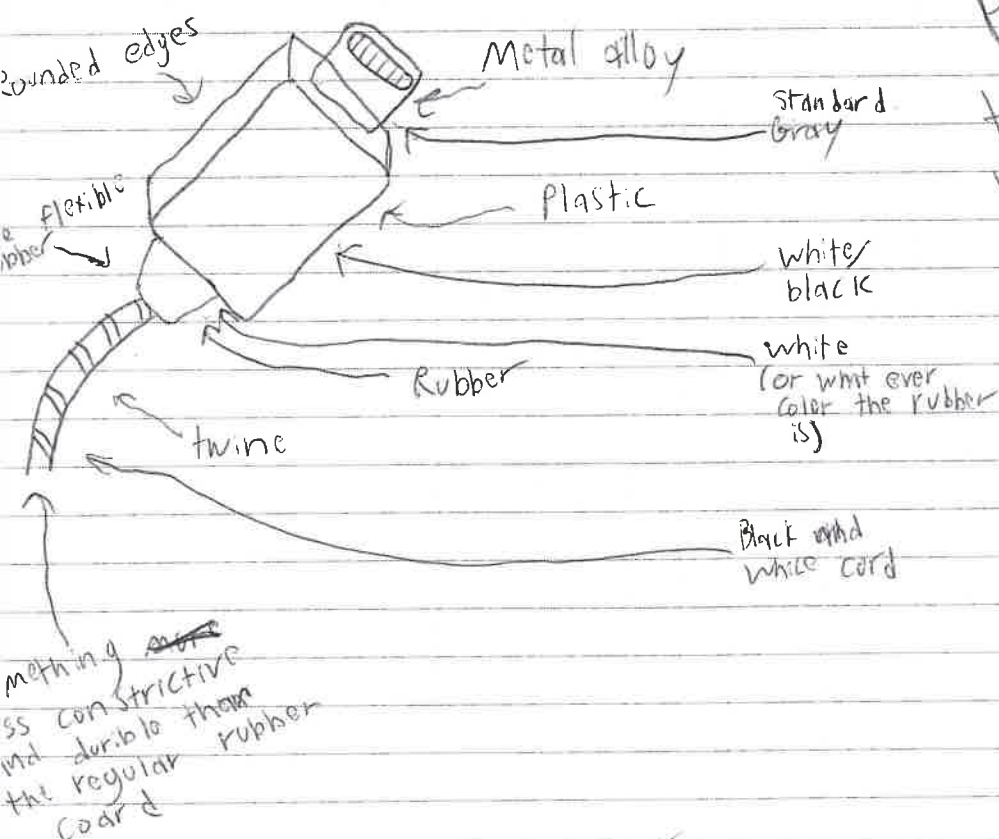 Rounded edges
Metal alloy
Standard
Gray
flexible
Plastic
white/
black
white
(or what ever
color the rubber
is)
Rubber
twine
Black and
white cord
mething more
ss constrictive
nd durible than
the regular rubber
coard